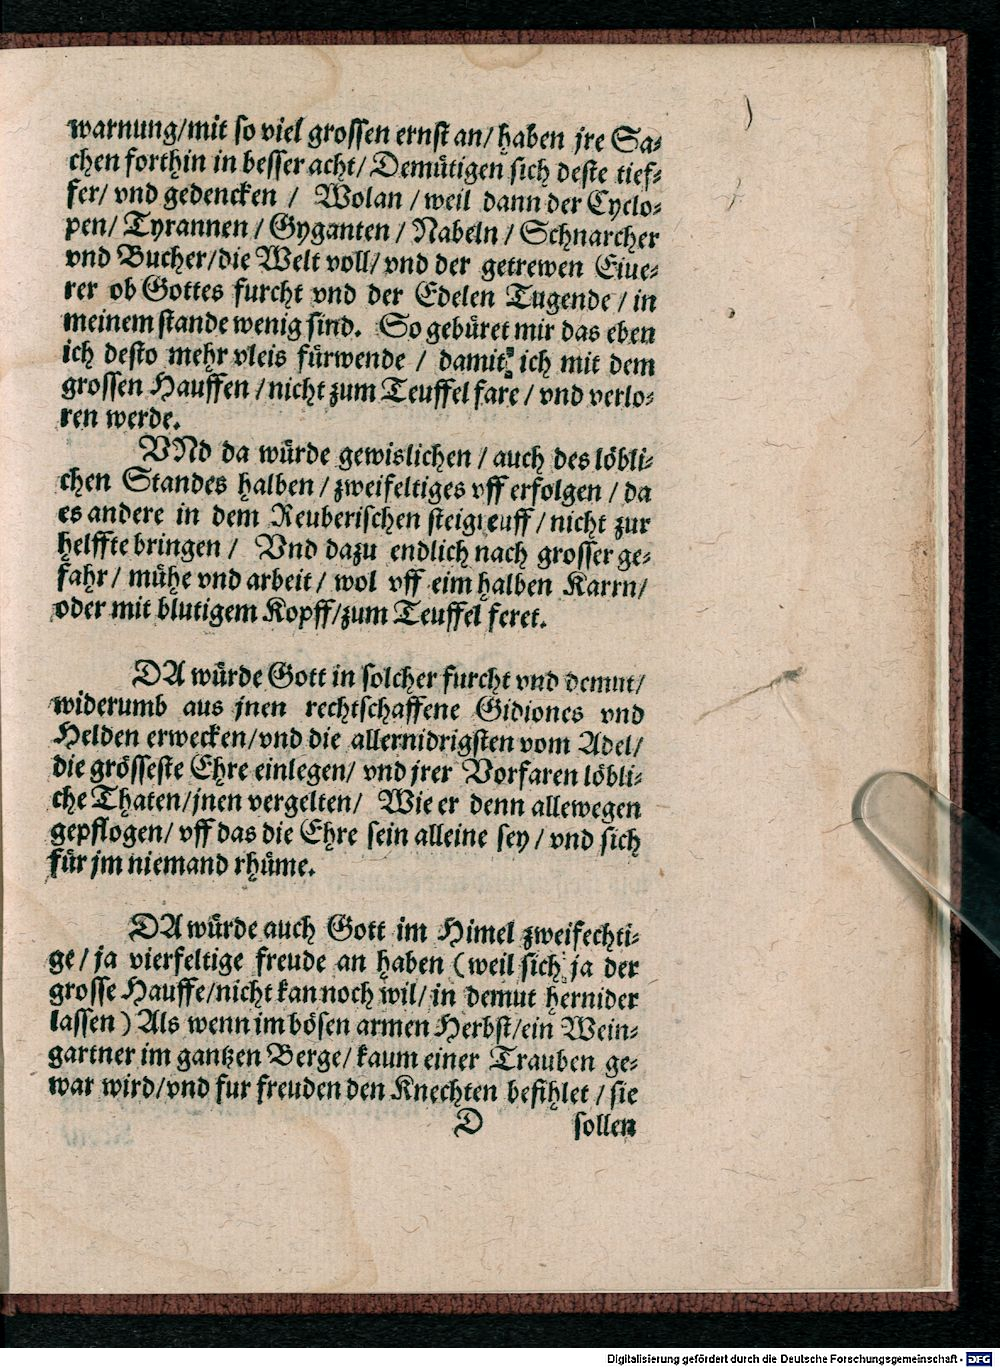 warnung/mit so viel grossen ernst an/ haben jre Sa-
chen forthin in besser acht/ Demütigen sich deste tief-
fer/ vnd gedencken / Wolan / weil dann der Cyclo-
pen/ Tyrannen / Gyganten / Nabeln / Schnarcher
vnd Bucher/die Welt voll/ vnd der getrewen Eiue-
rer ob Gottes furcht vnd der Edelen Tugende / in
meinem stande wenig sind. So gebüret mir das eben
ich desto mehr vleis fürwende / damit ich mit dem
grossen Hauffen /nicht zum Teuffel fare / vnd verlo-
ren werde.
VNd da würde gewislichen / auch des löbli-
chen Standes halben / zweifeltiges vff erfolgen / da
es andere in dem Reuberischen steigreuff / nicht zur
helffte bringen / Vnd dazu endlich nach grosser ge-
fahr / mühe vnd arbeit / wol vff eim halben Karrn/
oder mit blutigem Kopff/zum Teuffel feret.
DA würde Gott in solcher furcht vnd demut/
widerumb aus jnen rechtschaffene Gidiones vnd
Helden erwecken/vnd die allernidrigsten vom Adel/
die grösseste Ehre einlegen/ vnd jrer Vorfaren löbli-
che Thaten/jnen vergelten/ Wie er denn allewegen
gepflogen/ vff das die Ehre sein alleine sey / vnd sich
für jm niemand rhüme.
DA würde auch Gott im Himel zweifechti-
ge / ja vierfeltige freude an haben (weil sich ja der
grosse Hauffe/nicht kan noch wil/ in demut hernider
lassen) Als wenn im bösen armen Herbst/ein Wein-
gartner im gantzen Berge/ kaum einer Trauben ge-
war wird/vnd fur freuden den Knechten befihlet / sie
D sollen
Digitalisierung gefördert durch die Deutsche Forschungsgemeinschaft - DFG